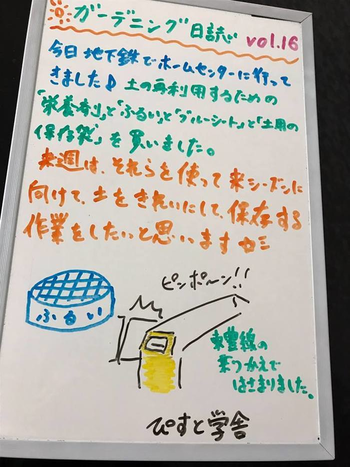 ガーデニング日誌 vol.16
今日地下鉄でホームセンターに行って
きました♪土の再利用するための
「栄養剤」と「ふるい」と「ブルーシート」と「土用の
保存袋」を買いました。
来週は、それらを使って来シーズンに
向けて、土をきれいにして、保存する
作業をしたいと思います
ピンポーン!!
ふるい
東豊線の
つかえで
はさまりました。
ぴすと学舎